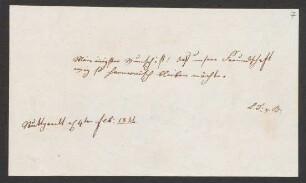 7
Mein innigster Wunsch ist! daß unsere Freundschaft
ewig so harmonisch bleiben möchte.
Stuttgardt 4ten Feb: